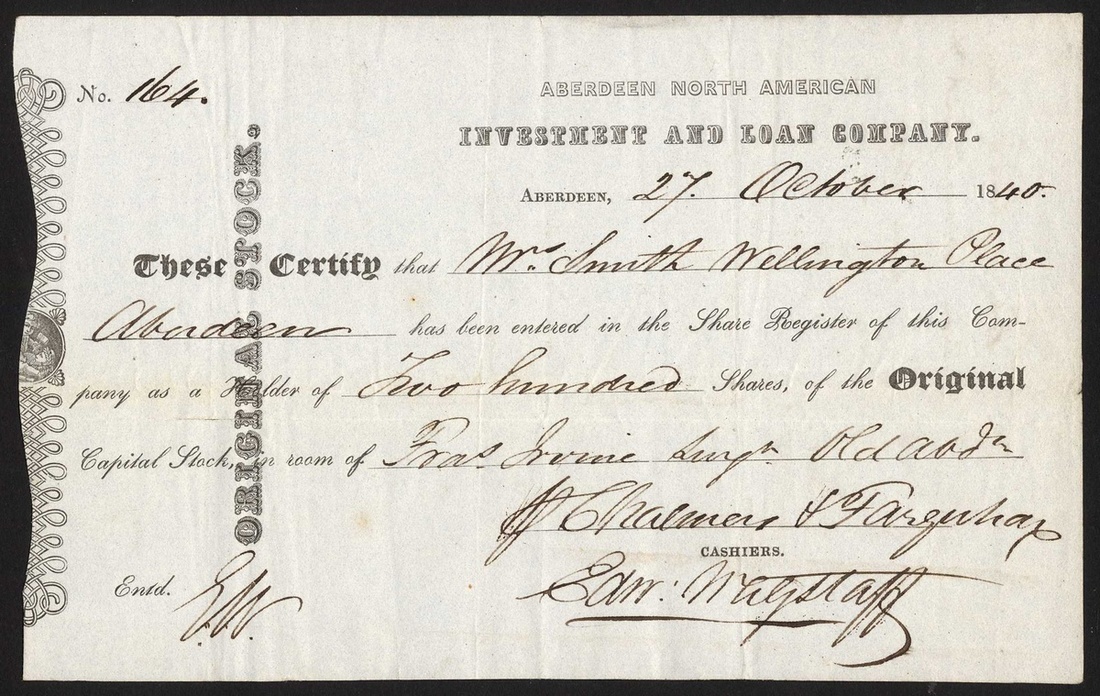 No. 164.
ABERDEEN NORTH AMERICAN
INVESTMENT AND LOAN COMPANY.
ABERDEEN, 27. October 1840.
ORIGINAL STOCK.
These Certify that Mrs. Smith Wellington Place
Aberdeen has been entered in the Share Register of this Com-
pany as a Holder of Two hundred Shares, of the Original
Capital Stock, in room of Fras Irvine Surgn Old Abdn
Chalmers & Farquhar
CASHIERS.
Entd. EW. Edw: Wagstaff